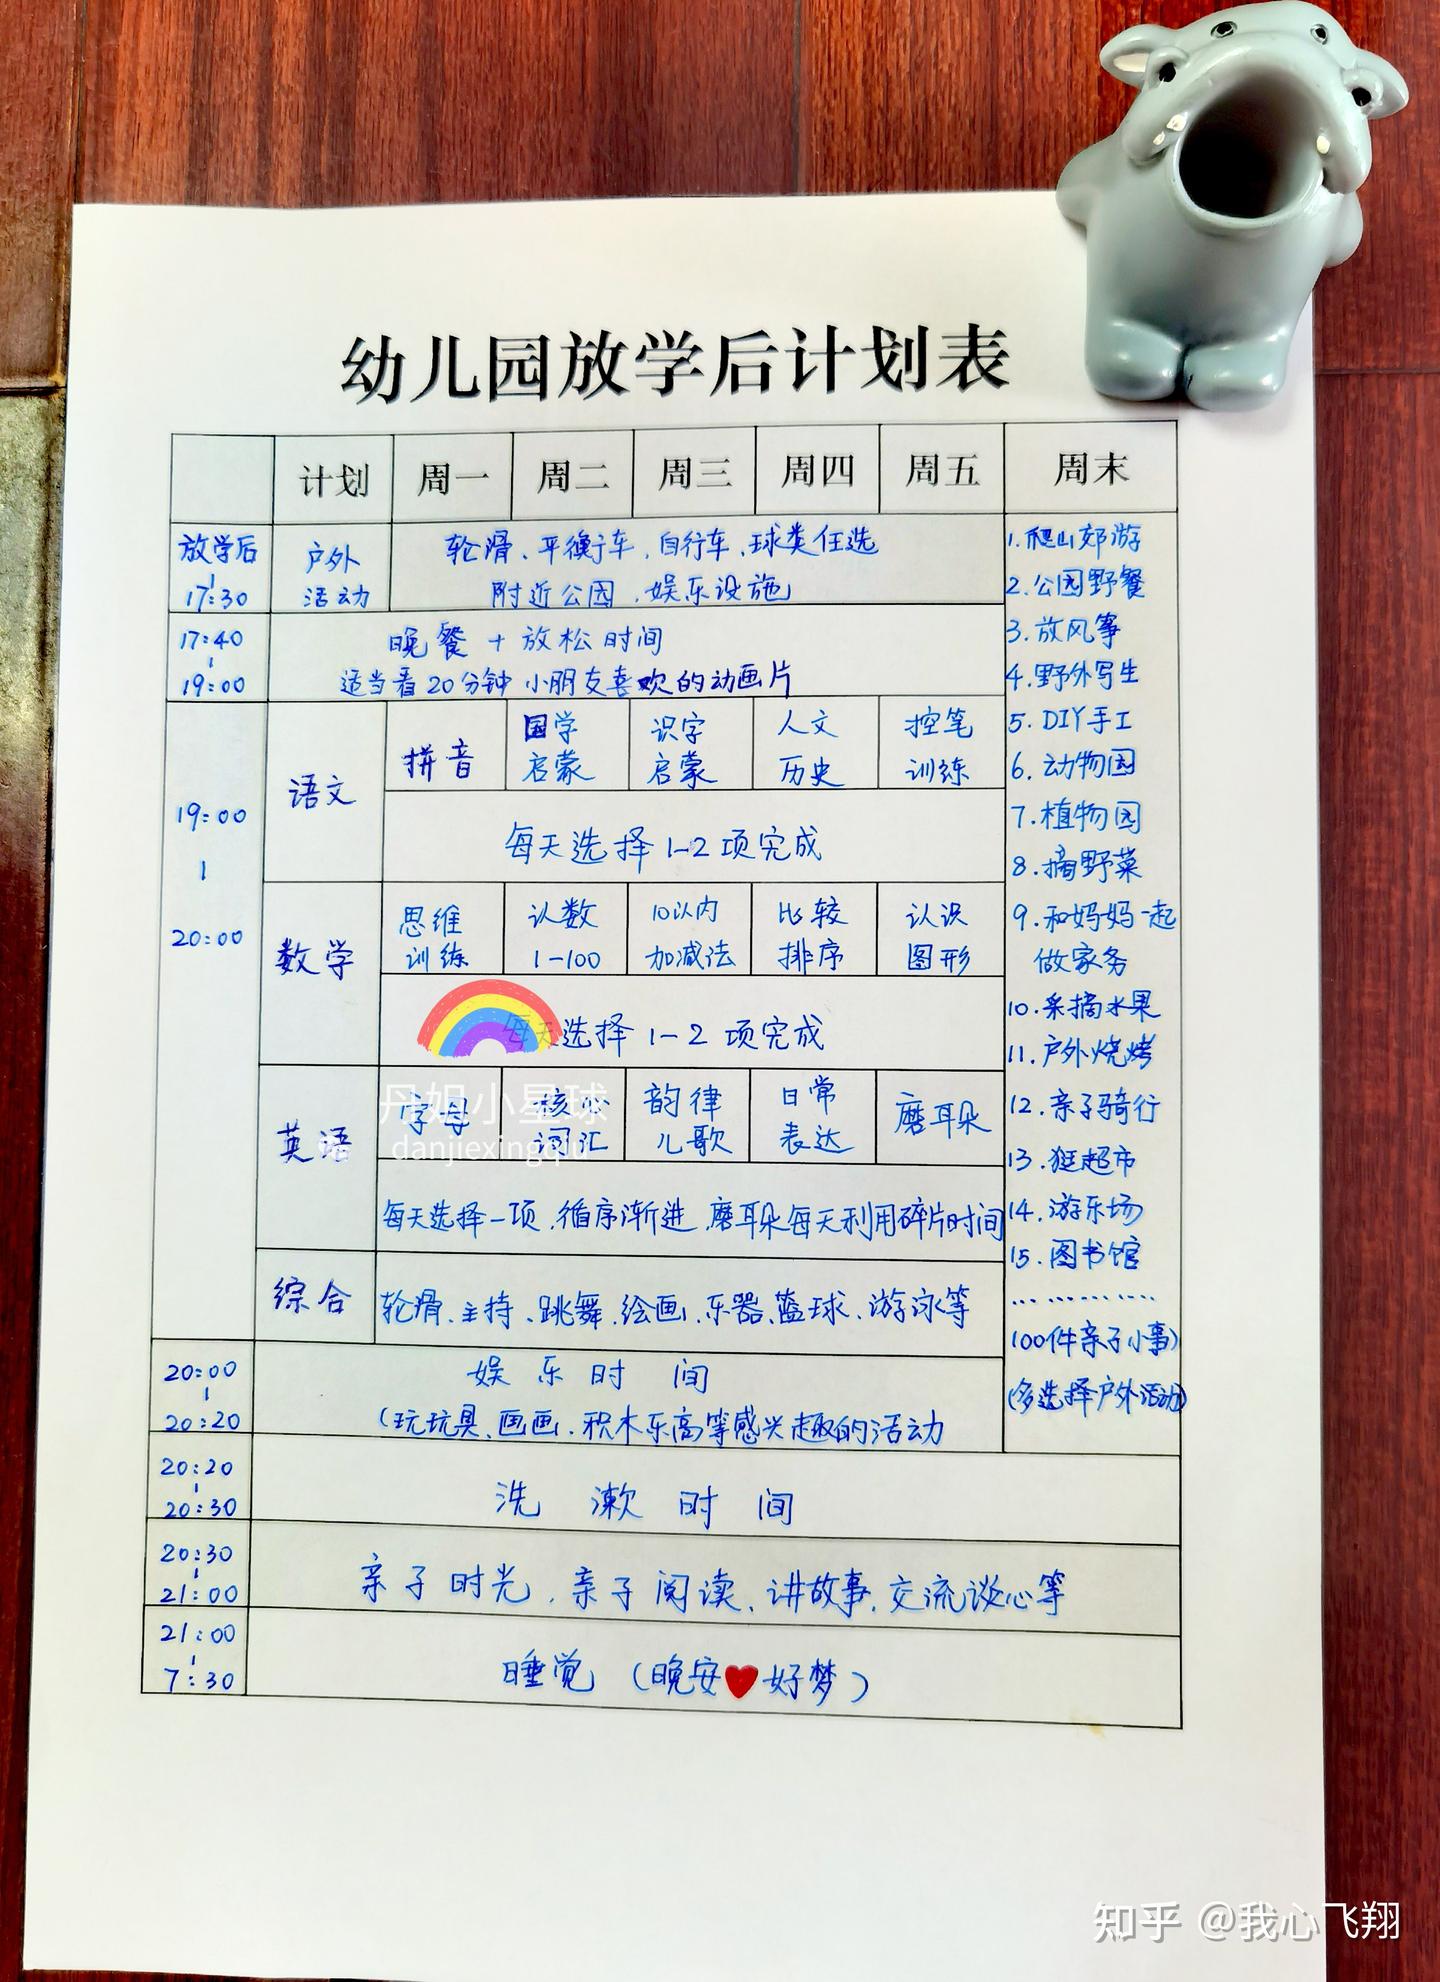 幼儿园放学后计划表
计划 周一 周二 周三 周四 周五 周末
放学后
17:30
户外
活动
轮滑、平衡车、自行车、球类任选
附近公园、娱乐设施
17:40
19:00
晚餐 + 放松时间
适当看20分钟 小朋友喜欢的动画片
19:00
20:00
语文
拼音
国学
启蒙
识字
启蒙
人文
历史
控笔
训练
每天选择1-2项完成
数学
思维
训练
认数
1-100
10以内
加减法
比较
排序
认识
图形
每天选择1-2项完成
英语
字母
核心
词汇
韵律
儿歌
日常
表达
磨耳朵
每天选择一项、循序渐进、磨耳朵每天利用碎片时间
综合
轮滑、主持、跳舞、绘画、乐器、篮球、游泳等
1.爬山郊游
2.公园野餐
3.放风筝
4.野外写生
5.DIY手工
6.动物园
7.植物园
8.摘野菜
9.和妈妈一起
做家务
10.采摘水果
11.户外烧烤
12.亲子骑行
13.逛超市
14.游乐场
15.图书馆
…………
100件亲子小事)
(多选择户外活动)
20:00
20:20
娱乐时间
(玩玩具、画画、积木乐高等感兴趣的活动
20:20
20:30
洗漱时间
20:30
21:00
亲子时光、亲子阅读、讲故事、交流谈心等
21:00
7:30
睡觉 (晚安❤好梦)
丹姐小星球
danjiexingqiu
知乎 @我心飞翔